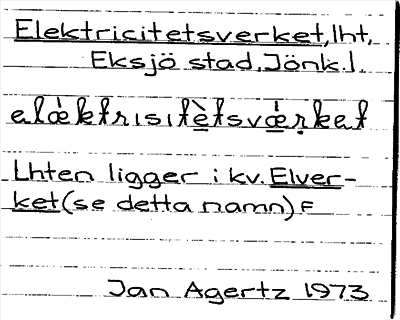 Elektricitetsverket, lht,
Eksjö stad, Jönk.l.
elæ̀ktrisitè̱tsvǽ̱ṛket
Lhten ligger i kv. Elver-
ket (se detta namn) F
Jan Agertz 1973